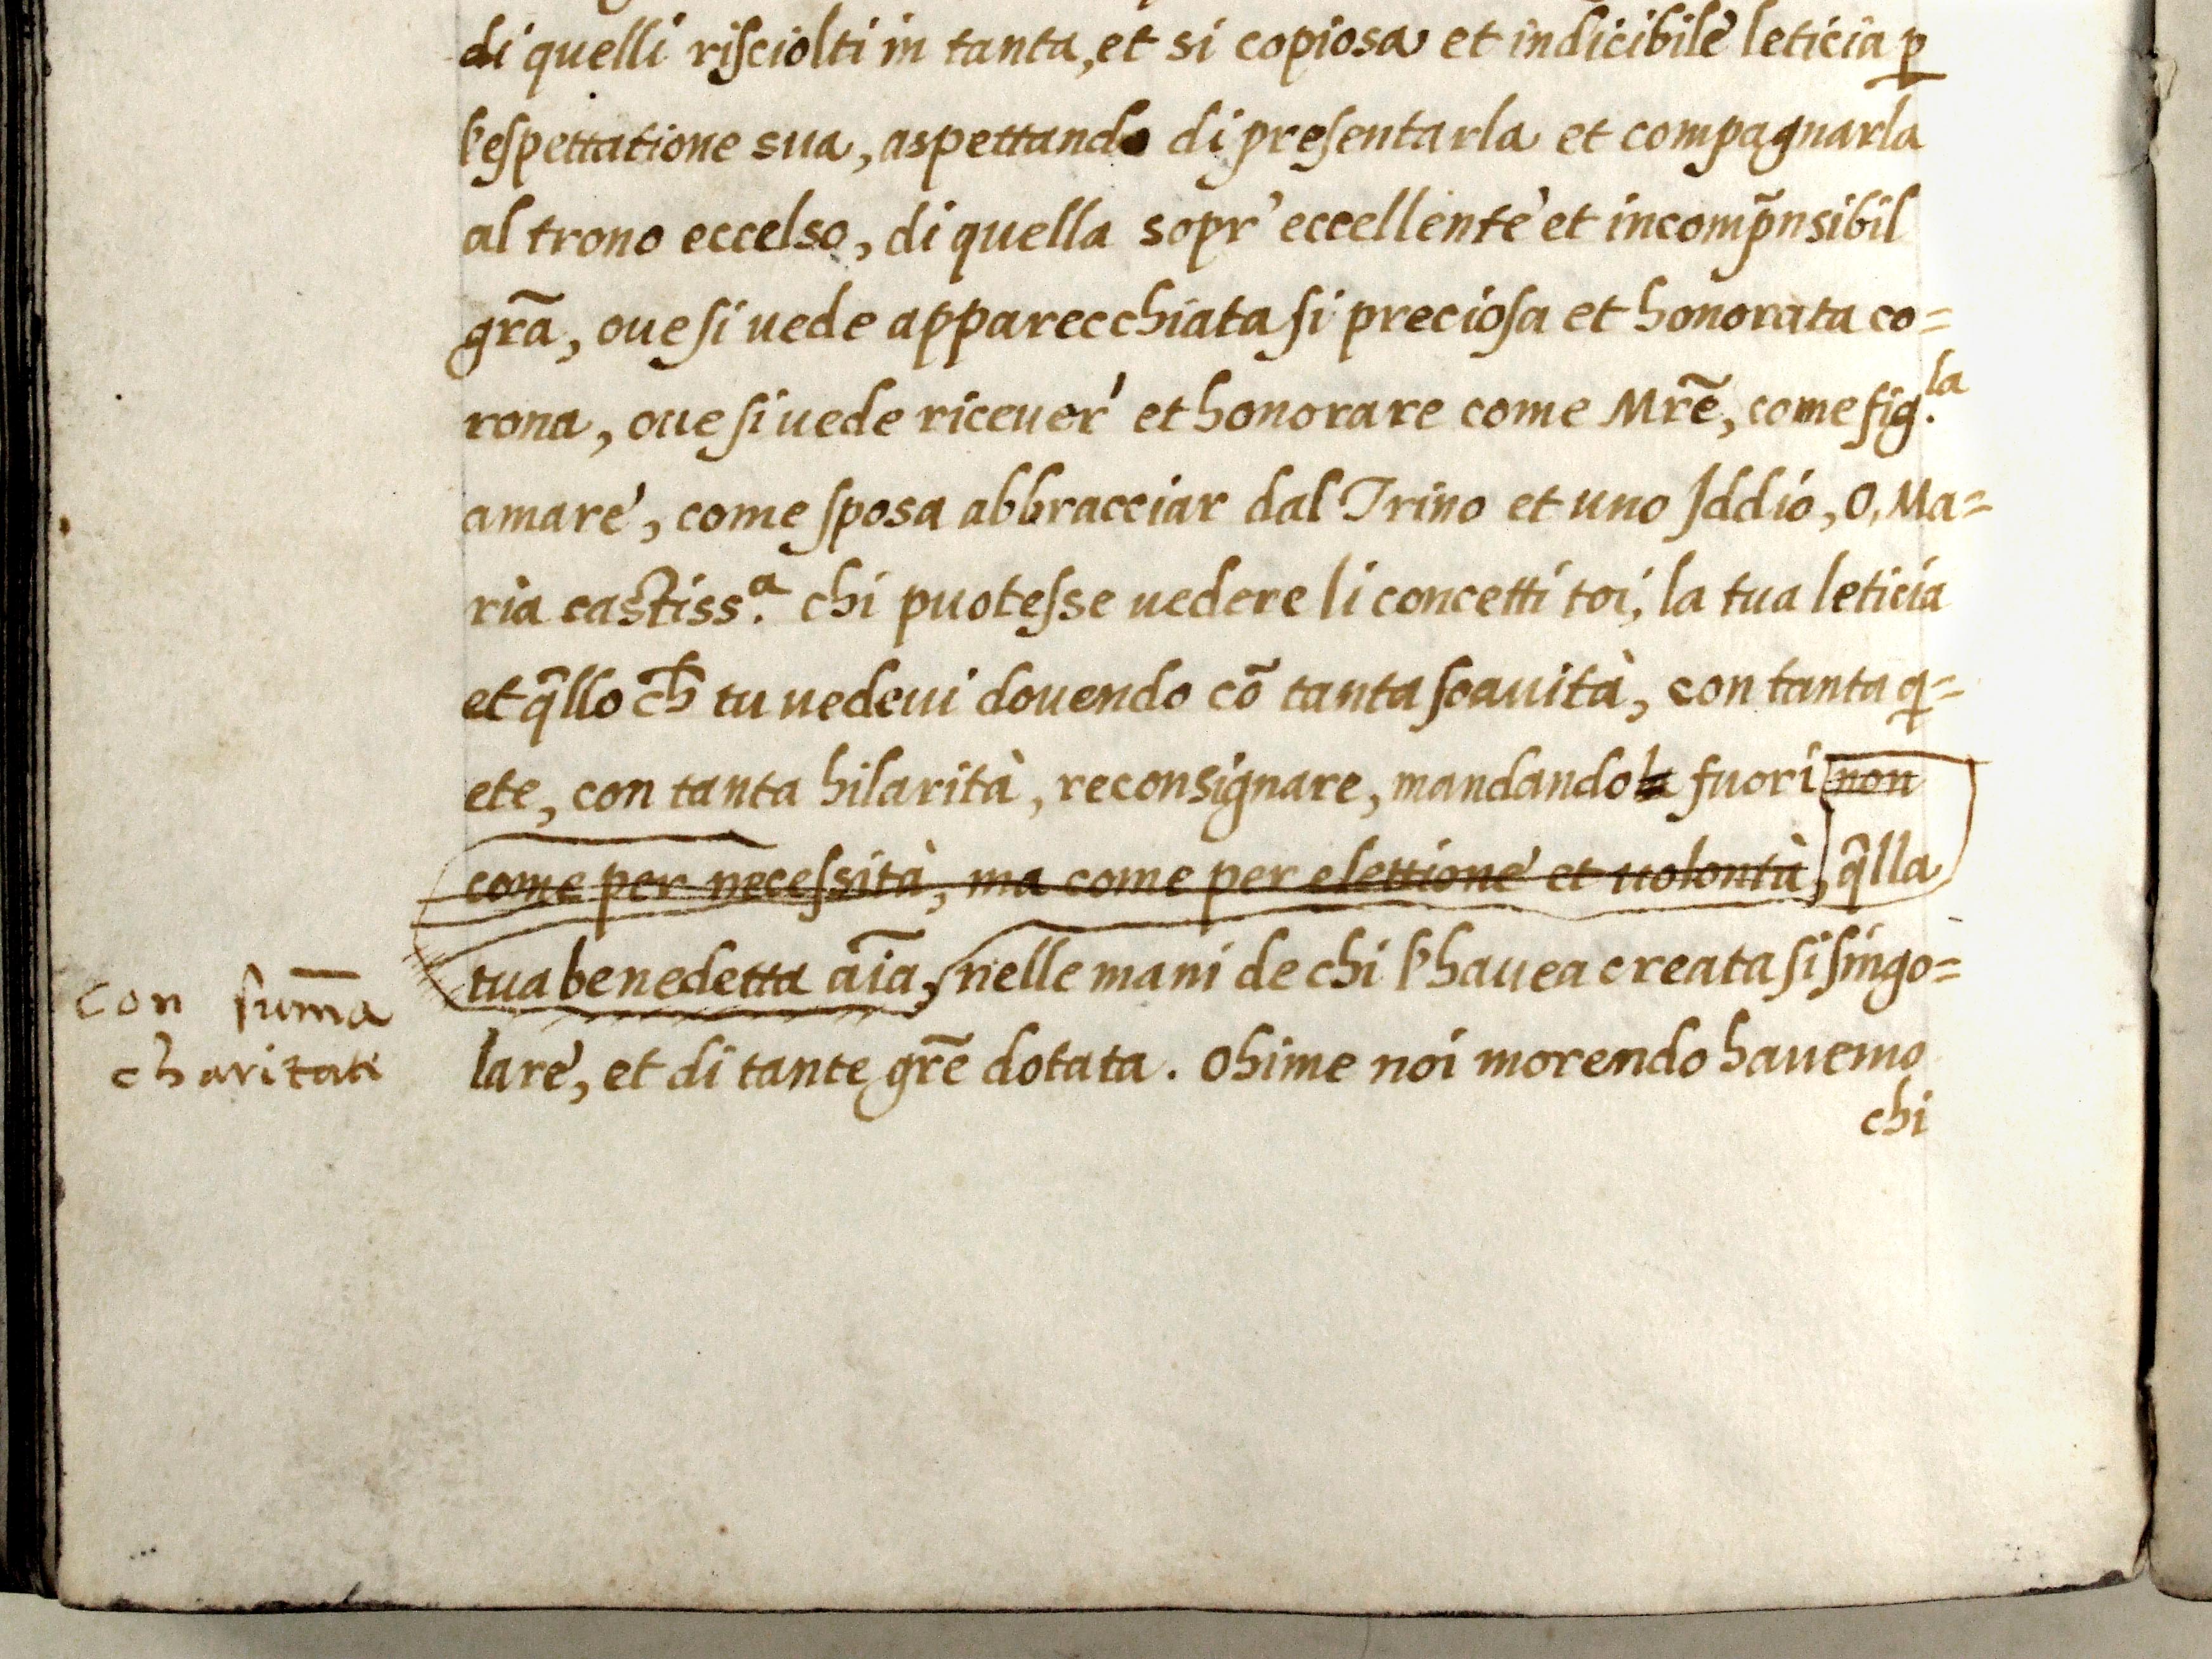 di quelli risciolti in tanta, et si copiosa et indicibile leticia p̱
l'espettatione sua, aspettando di presentarla et compagnarla
al trono eccelso, di quella sopr'eccellente et incomp̄nsibil
gr̄a, oue si uede apparecchiata si preciosa et honorata co=
rona, oue si uede riceuer' et honorare come Mr̄e, come fig.la
amare, come sposa abbracciar dal Trino et uno Iddio, O, Ma=
ria castiss.a chi puotesse uedere li concetti toi, la tua leticia
et q̄llo ch̄ tu uedeui douendo cō tanta soauità, con tanta q=
ete, con tanta hilarità, reconsignare, mandandola fuori non
come per necessità, ma come per elettione et uolontà, q̄lla
tua benedetta āīa, nelle mani de chi l'hauea creata si singo=
con sum̄a
charitati
lare, et di tante gr̄e dotata. Ohime noi morendo hauemo
chi